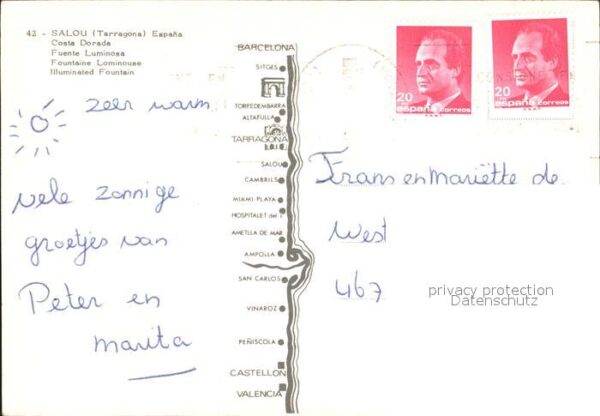 42 - SALOU (Tarragona) España
Costa Dorada
Fuente Luminosa
Fountaine Lominouse
Illuminated Fountain
zeer warm
vele zonnige
groetjes van
Peter en
marita
BARCELONA
SITGES
TORREDEMBARRA
ALTAFULLA
TARRAGONA
SALOU
CAMBRILS
MIAMI PLAYA
HOSPITALET del I.
AMETLLA DE MAR
AMPOLLA
SAN CARLOS
VINAROZ
PEÑISCOLA
CASTELLON
VALENCIA
20
españa correos
20
españa correos
Frans en Mariëtte de
West
467
privacy protection
Datenschutz